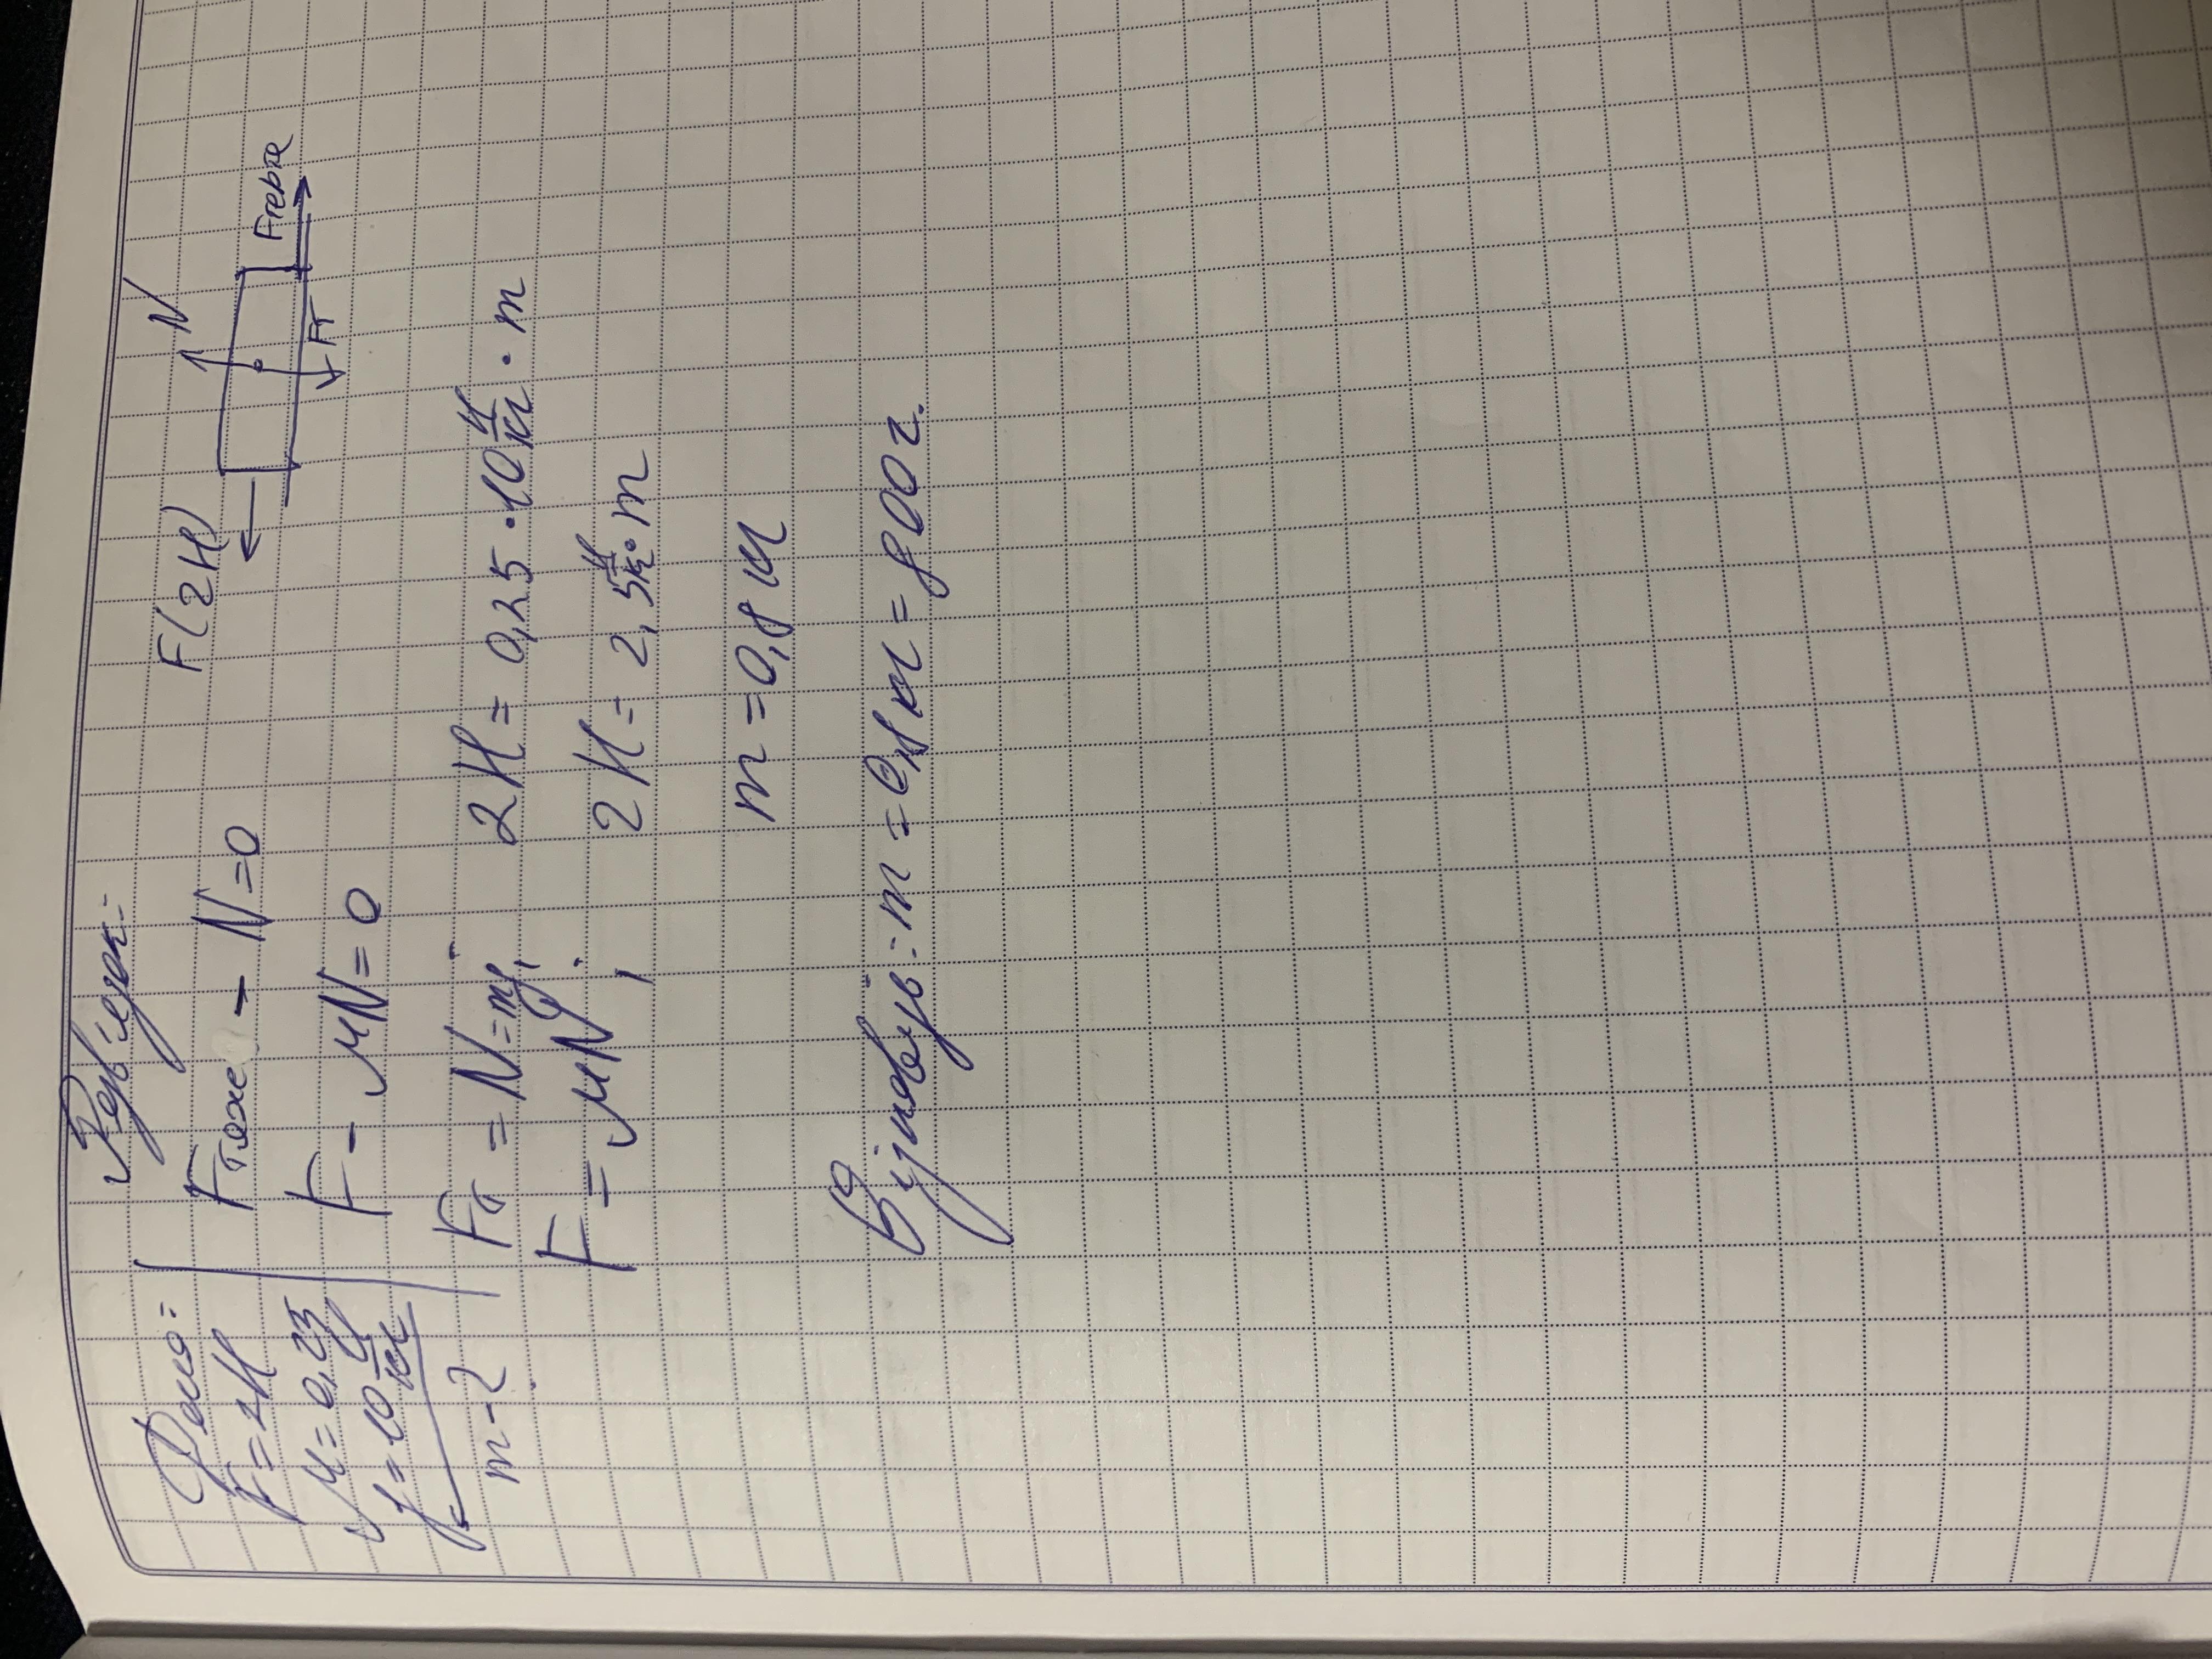 Дано:
F = 2Н
μ = 0,25
g = 10 Н/кг
m - ?
Розв'язок:
Fтяж - N = 0
F - μN = 0
Fт = N = mg;
F = μN;
F(2Н)
N
Fт
Fтертя
2Н = 0,25 · 10 Н/кг · m
2Н = 2,5 Н/кг · m
m = 0,8 кг
Відповідь: m = 0,8 кг = 800 г.